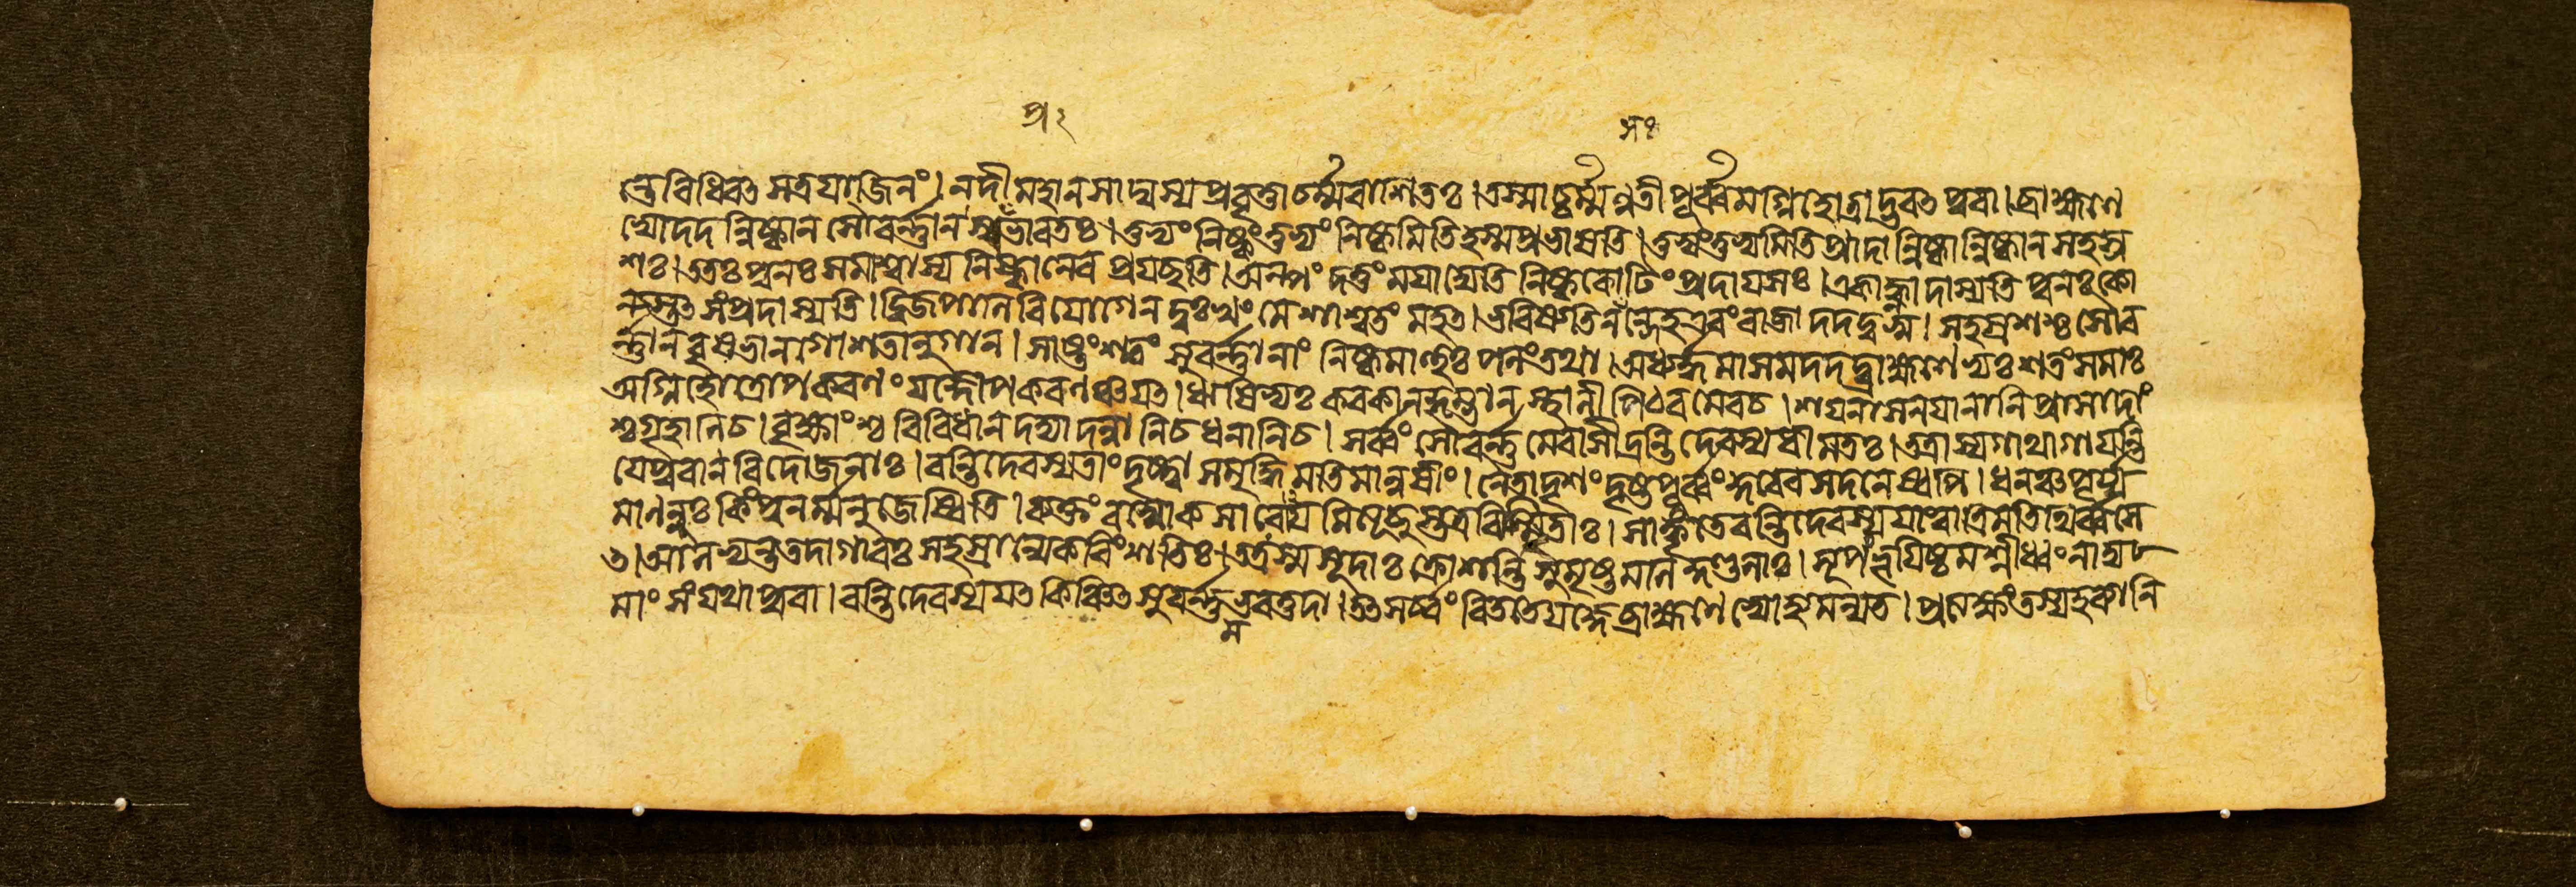 ন্তে বিধিবৎ সত্রযাজিনং। নদী মহানসাদ্যস্য প্রবৃত্তা চর্ম্মরাশিতঃ। তস্মাচ্চর্ম্মণ্বতী পূর্ব্বমগ্নিহোত্রাদ্ভবৎ পুরা। ব্রাহ্মণে
ভ্যোদদন্নিষ্কান সৌবর্ন্নান প্রভাবতঃ। তুভ্যং নিষ্কংস্তুভ্যং নিষ্কমিতি হস্ম প্রভাষতি। তুভ্যংস্তুভ্যমিতি প্রাদান্নিষ্কান্নিষ্কান সহস্র
শঃ। ততঃ পুনঃ সমাশ্বাস্য নিষ্কানেব প্রযছতি। অল্পং দত্তং মযাদ্যেতি নিষ্ককোটিং প্রদায সঃ। একাহ্না দাস্যতি পুনঃ কো
ন্যস্তৎ সংপ্রদাস্যতি। দ্বিজপাণিবিযোগেন দুঃখং মে শাশ্বতং মহৎ। ভবিষ্যতি ন সন্দেহ এবং রাজা দদদ্বসু। সহস্রশশ্চ সৌব
র্ন্নান বৃষভান গোশতানুগান। সাষ্টংশতং সুবর্ন্নানাং নিষ্কমাহুঃ পলং তথা। অধ্যর্দ্ধমাসমদদদ্ব্রাহ্মণেভ্যঃ শতংসমাঃ
অগ্নিহোত্রোপকরণং যজ্ঞোপকরণঞ্চ যৎ। ঋষিভ্যঃ করকান কুম্ভান স্থালী পিঠরমেবচ। শযনাসনযানানি প্রাসাদাং
শ্চগৃহানিচ। বৃক্ষাংশ্চ বিবিধান দদ্যাদন্নানিচ ধনানিচ। সর্ব্বং সৌবর্ন্নমেবাসীদ্রন্তিদেবস্য ধীমতঃ। তত্রাস্য গাথা গাযন্তি
যে পুরাণবিদো জনাঃ। রন্তিদেবস্য তাং দৃষ্ট্বা সমৃদ্ধিমতিমানুষীং। নৈতাদৃশং দৃষ্টপূর্ব্বং কুবেরসদনেষ্বপি। ধনঞ্চ পূর্য্য
মাণন্নুঃ কিং পুনর্ম্মনুজেষ্বিতি। সাঙ্কৃতে রন্তিদেবস্য যাং রাত্রিমতিথির্ব্বসে
ৎ। আলভ্যন্ত তদা গাবঃ সহস্রান্যেকবিংশতিঃ। তত্র স্ম সূদাঃ ক্রোশন্তি সুমৃষ্টমণিকুণ্ডলাঃ। সূপং ভূযিষ্ঠমশ্নীধ্বং নাদ্য
মাংসং যথা পুরা। রন্তিদেবস্য যৎ কিঞ্চিৎ সুবর্ন্নমভবত্তদা। তৎ সর্ব্বং বিততে যজ্ঞে ব্রাহ্মণেভ্যো হ্যমন্যত। প্রত্যক্ষং তস্য হব্যানি